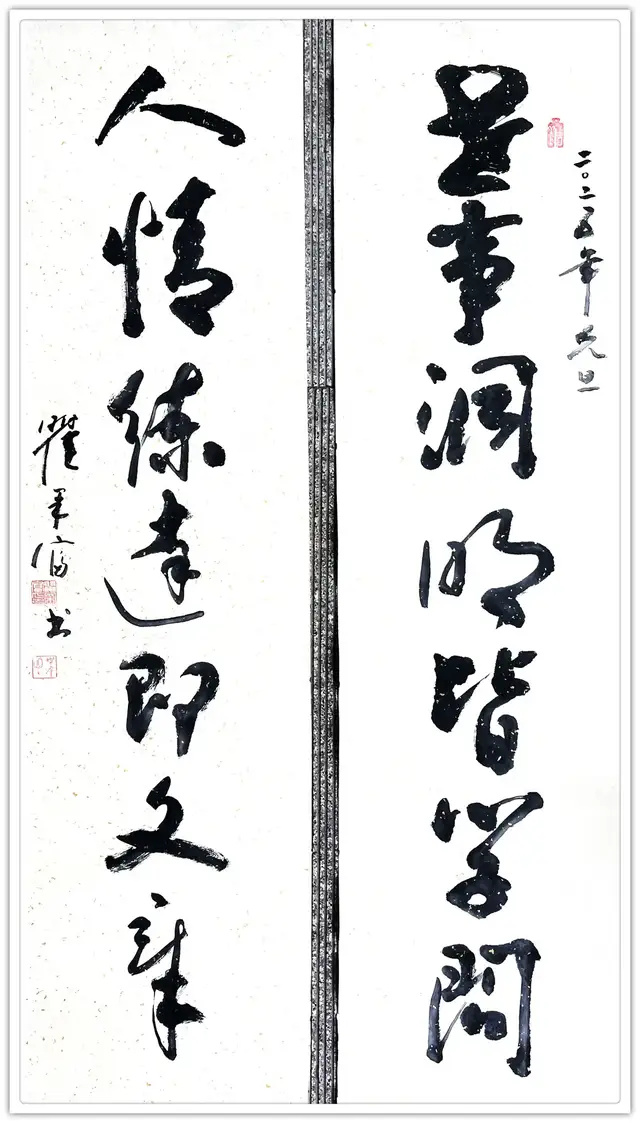 二〇二五年元旦
世事洞明皆学問
人情練達即文章
瞿 书